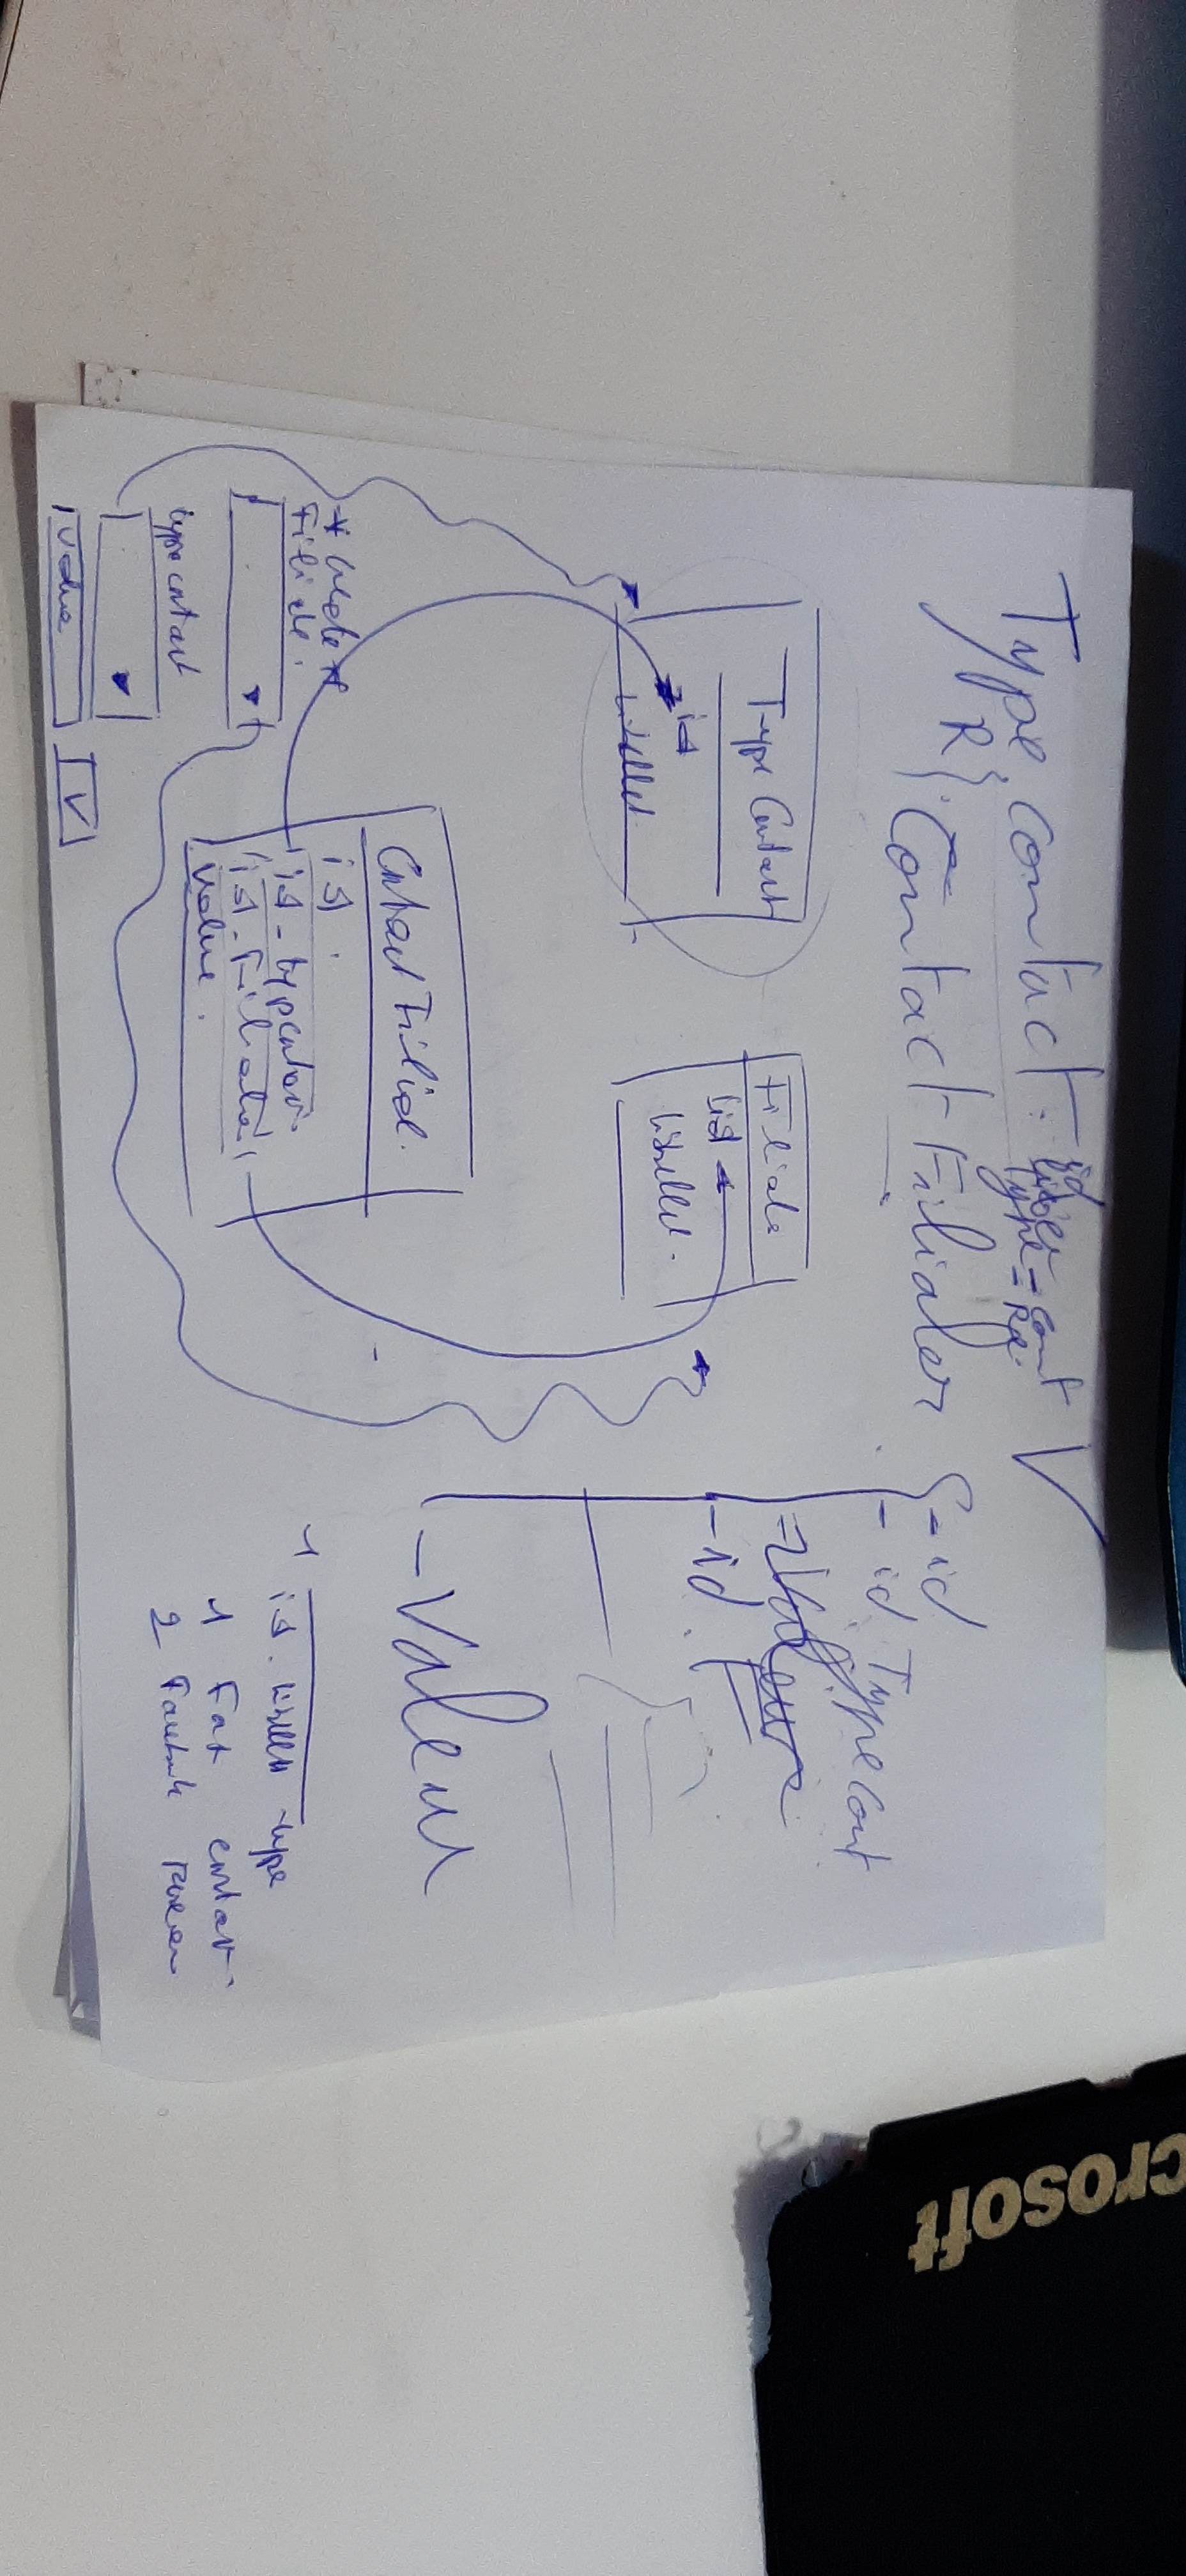 Type contact : id
libelle
Type = cont
R Contact Filiales
- id
- id Type cont
- Valeur
- id F
- Valeur
Type Contact
id
Libellet
Filiale
id
Libellet.
Contact Filial.
id
id - typcontact
id - Filiale
Value.
Filiale.
type contact
Value
id. Libellet type
1 Fax contact
2 Facebook
crosoft